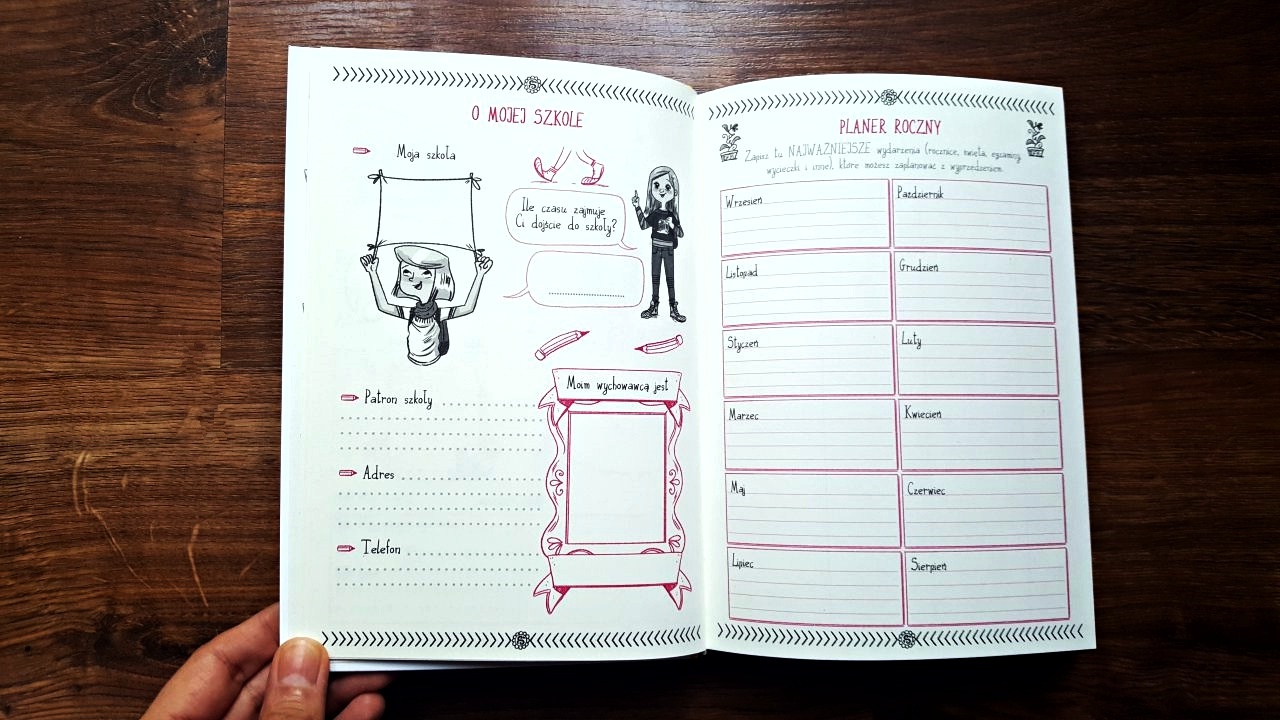 O MOJEJ SZKOLE
Moja szkoła
Ile czasu zajmuje
Ci dojście do szkoły?
Moim wychowawcą jest
Patron szkoły
Adres
Telefon
PLANER ROCZNY
Zapisz tu NAJWAŻNIEJSZE wydarzenia (rocznice, święta, egzaminy,
wycieczki i inne), które możesz zaplanować z wyprzedzeniem.
Wrzesień
Październik
Listopad
Grudzień
Styczeń
Luty
Marzec
Kwiecień
Maj
Czerwiec
Lipiec
Sierpień